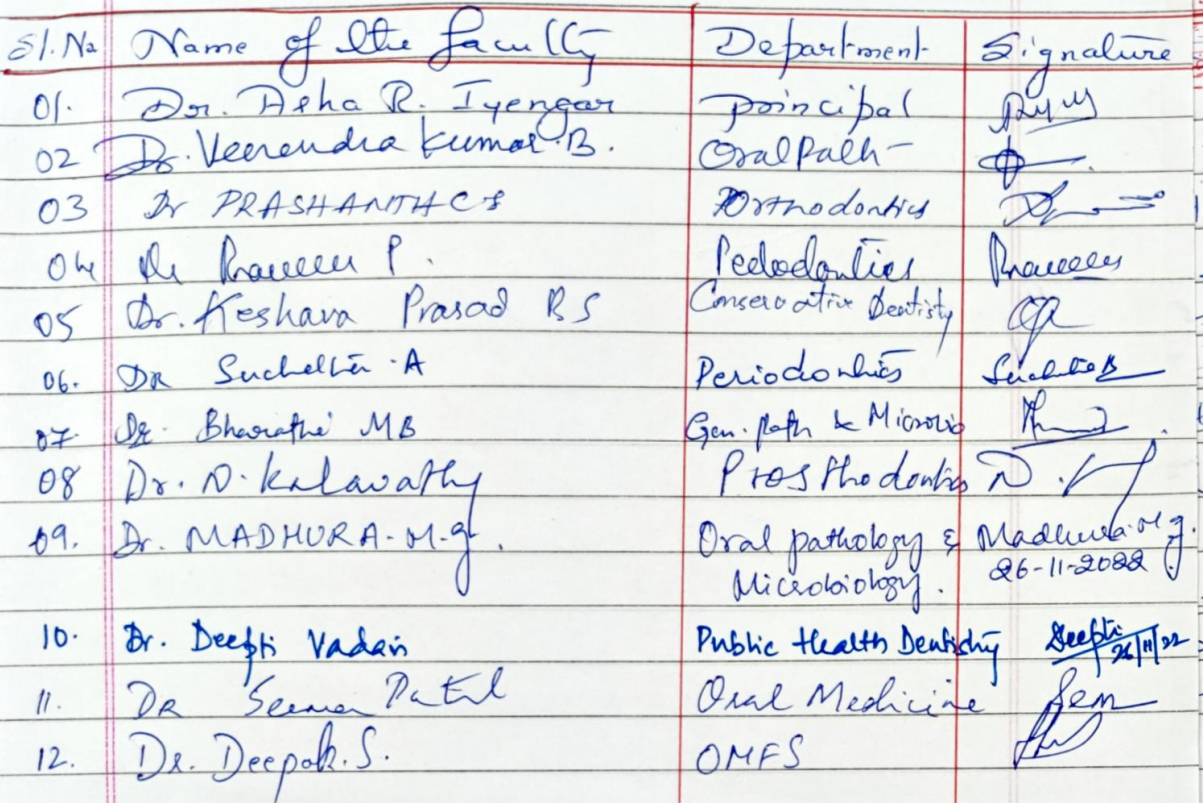 Sl.No Name of the faculty Department Signature
01. Dr. Asha R. Iyengar Principal
02 Dr. Veerendra Kumar B. Oral Path
03 Dr PRASHANTH C S Orthodontics
04 Dr Praveen P. Pedodontics Praveen
05 Dr. Keshava Prasad B S Conservative Dentistry
06. DR Suchetha A Periodontics Suchetha
07 Dr. Bharathi MB Gen. path & Microbio
08 Dr. N. Kalavathy Prosthodontics N.
09. Dr. MADHURA. M.g. Oral pathology & Madhura M.g.
Microbiology. 26-11-2022
10. Dr. Deepti Vadavi Public Health Dentistry Deepti
26/11/22
11. DR Seema Patil Oral Medicine Seem
12. Dr. Deepak. S. OMFS